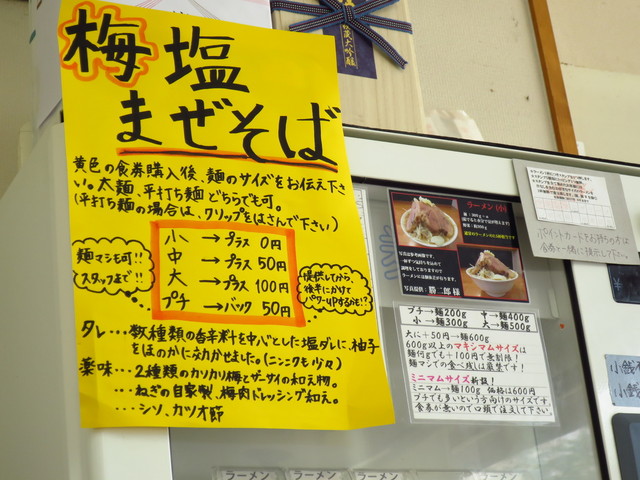 梅塩
まぜそば
黄色の食券購入後、麺のサイズをお伝え下さ
い。太麺、平打ち麺どちらでも可。
(平打ち麺の場合は、クリップをはさんで下さい)
小 → プラス 0円
中 → プラス 50円
大 → プラス 100円
プチ → バック 50円
麺マシも可!!
スタッフまで!!
提供してから、
後半にかけて
パワーUPするかも!?
タレ…数種類の香辛料を中心とした塩ダレに、柚子
をほのかに効かせました。(ニンニクも少々)
薬味…2種類のカリカリ梅とザーサイの和え物。
…ねぎの自家製、梅肉ドレッシング和え。
…シソ、カツオ節
大吟醸
ラーメン(小)
写真提供:勝二郎 様
プチ→麺200g 中→麺400g
小→麺300g 大→麺500g
大に+50円→麺600g
600g以上のマキシマムサイズは
麺何gでも+100円で無制限!
麺マシでの食べ残しは厳禁です!
ミニマムサイズ新設!
ミニマム→麺100g 価格は600円
プチでも多いという方向けのサイズです
食券が無いので口頭で注文して下さい。
ポイントカードをお持ちの方は
食券と一緒に提示して下さい。
ラーメン ラーメン ラーメン ラーメン